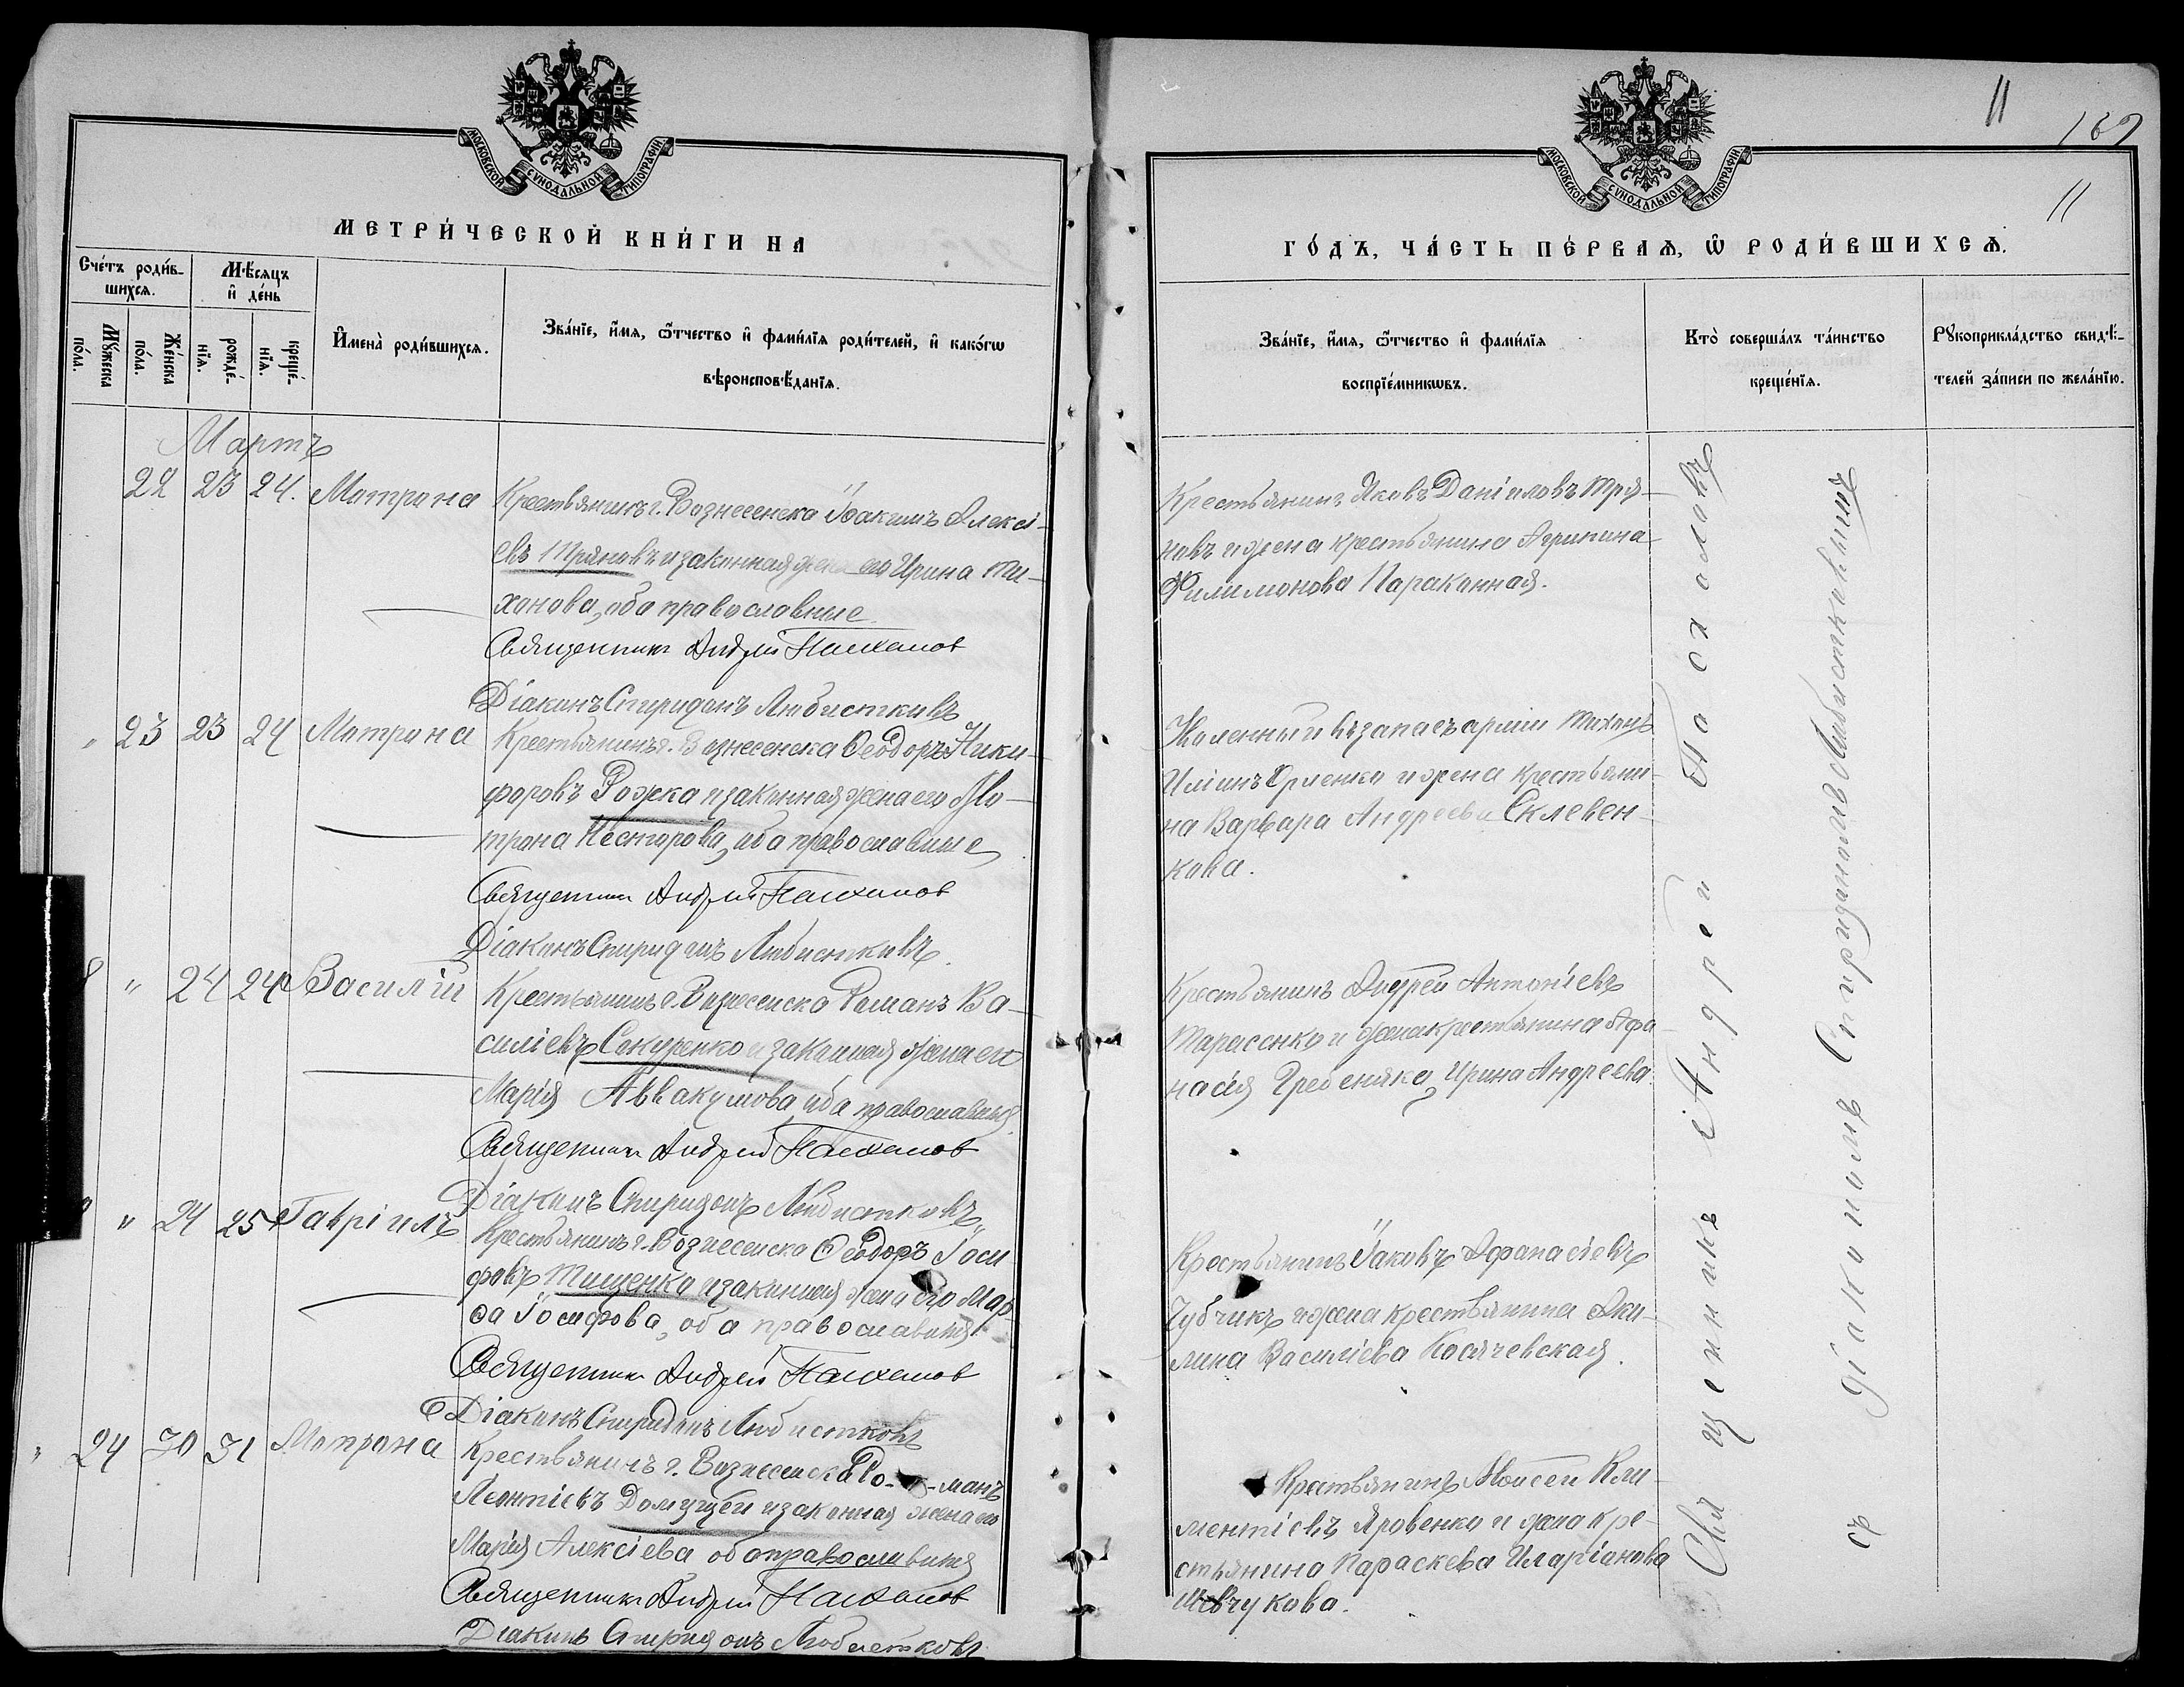 МОСКОВСКОЙ СѴНОДАЛЬНОЙ ТИПОГРАФІИ.
МЕТРИ́ЧЕСКОЙ КНИ́ГИ НА
Сче́тъ роди́в-
шихсѧ.
Мѣ́сяцъ
и҆ де́нь
Мꙋ́жеска
по́ла.
Же́нска
по́ла.
рожде́-
нїѧ.
креще́-
нїѧ.
И҆мена̀ роди́вшихсѧ.
Зва́нїе, и҆́мѧ, ѻ҆́тчество и҆ фами́лїѧ роди́телей, и҆ како́гѡ
вѣроисповѣ́данїѧ.
Мартъ
22 23 24. Матрона
Крестьянинъ г. Вознесенска Іоакимъ Алексі-
евъ Пряновъ и законная жена его Ирина Ти-
хонова, оба православные
Священникъ Андрей
Діаконъ Спиридонъ Любистковъ
„ 23 23 24 Матрона
Крестьянинъ г. Вознесенска Ѳеодоръ Ники-
форовъ Рожка и законная жена его Ма-
трона Несторова, оба православные
Священникъ Андрей
Діаконъ Спиридонъ Любистковъ
8 „ 24 24 Василій
Крестьянинъ г. Вознесенска Романъ Ва-
силіевъ Сакуренко и законная жена его
Марія Аввакумова, оба православные
Священникъ Андрей
Діаконъ Спиридонъ Любистковъ
„ 24 25 Гавріилъ
Крестьянинъ г. Вознесенска Ѳеодоръ Іоси-
фовъ Тищенко и законная жена его Мар-
ѳа Іосифова, оба православные
Священникъ Андрей
Діаконъ Спиридонъ Любистковъ
„ 24 30 31 Матрона
Крестьянинъ г. Вознесенска Ро-манъ
Леонтіевъ и законная жена его
Марія Алексіева оба православные
Священникъ Андрей
Діаконъ Спиридонъ Любистковъ
11
169
11
МОСКОВСКОЙ СѴНОДАЛЬНОЙ ТИПОГРАФІИ.
ГО́ДЪ, ЧА́СТЬ ПЕ́РВАѦ, Ѡ҆ РОДИ́ВШИХСѦ.
Зва́нїе, и҆́мѧ, ѻ҆́тчество и҆ фами́лїѧ
воспрїе́мникѡвъ.
Кто̀ соверша́лъ та́инство
креще́нїѧ.
Рꙋкоприкла́дство свидѣ́-
телей за́писи по жела́нїю.
Крестьянинъ Яковъ Даніиловъ Пря-
новъ и жена крестьянина Агрипина
Филимонова Параконная.
Уволенный въ запасъ арміи Тихонъ
Иліинъ Ярменко и жена крестьяни-
на Варвара Андреева Склевен-
кова.
Крестьянинъ Андрей Антоніевъ
Тарасенко и жена крестьянина Афа-
насія Гребеняка, Ирина Андреева.
Крестьянинъ Іаковъ Афанасіевъ
Чубчикъ и жена крестьянина Аки-
лина Василіева Косячевская.
Крестьянинъ Моисей Кли-
ментіевъ Яровенко и жена кре-
стьянина Параскева Иларіанова
Шевчукова.
Священникъ Андрей
съ діакономъ Спиридономъ Любистковымъ